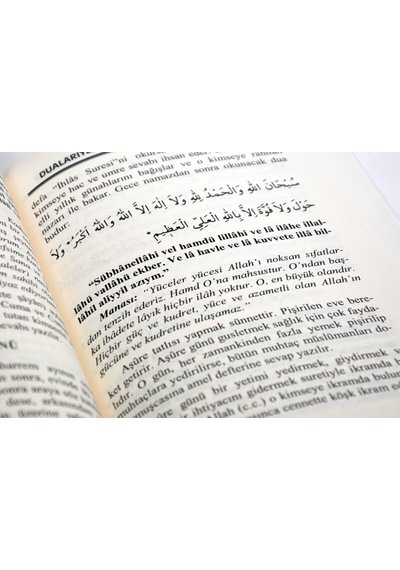 DUALARI
defa "İhlâs Suresi"ni okur
kimseye hac ve umre sevabı ihsan eder
elli yıllık günahlarını bağışlar ve o kimseye rahmet
nazarı ile bakar. Gece namazdan sonra okunacak dua
budur:
سُبْحَانَ اللهِ وَالْحَمْدُ لِلهِ وَلَا اِلٰهَ اِلَّا اللهُ وَاللهُ اَكْبَرُ وَلَا
حَوْلَ وَلَا قُوَّةَ اِلَّا بِاللهِ الْعَلِىِّ الْعَظِيمِ
"Sübhânellâhi vel hamdü lillâhi ve lâ ilâhe illal-
lâhü vallâhü ekber. Ve lâ havle ve lâ kuvvete illâ bil-
lâhil aliyyil azıym."
Manası: "Yüceler yücesi Allah'ı noksan sıfatlar-
dan tenzih ederiz. Hamd O'na mahsustur. O'ndan baş-
ka ibâdete lâyık hiçbir ilâh yoktur. O, en büyük olandır.
Hiçbir kudret, yüce ve azametli olan Allah'ın
gücüne ve kudretine ulaşamaz."
Aşüre tatlısı yapmak sünnettir. Pişirilen eve bere-
ket getirir. Aşüre günü gusletmek sağlık için çok fayda-
lıdır. O gün, her zamankinden fazla yemek pişirilip
muhtaçlara yedirilirse, bütün muhtaç müslümanları do-
muşçasına amel defterine sevap yazılır.
Aşüre günü bir yetimi yedirmek, giydirmek
bir ihtiyacını gidermek suretiyle ikramda bulun
Allah (c.c.) o kimseye ikramda
cennette köşk ikram
NÜ
ayının
sonra, evinde
araya söz
dese, arkasından
üzerine